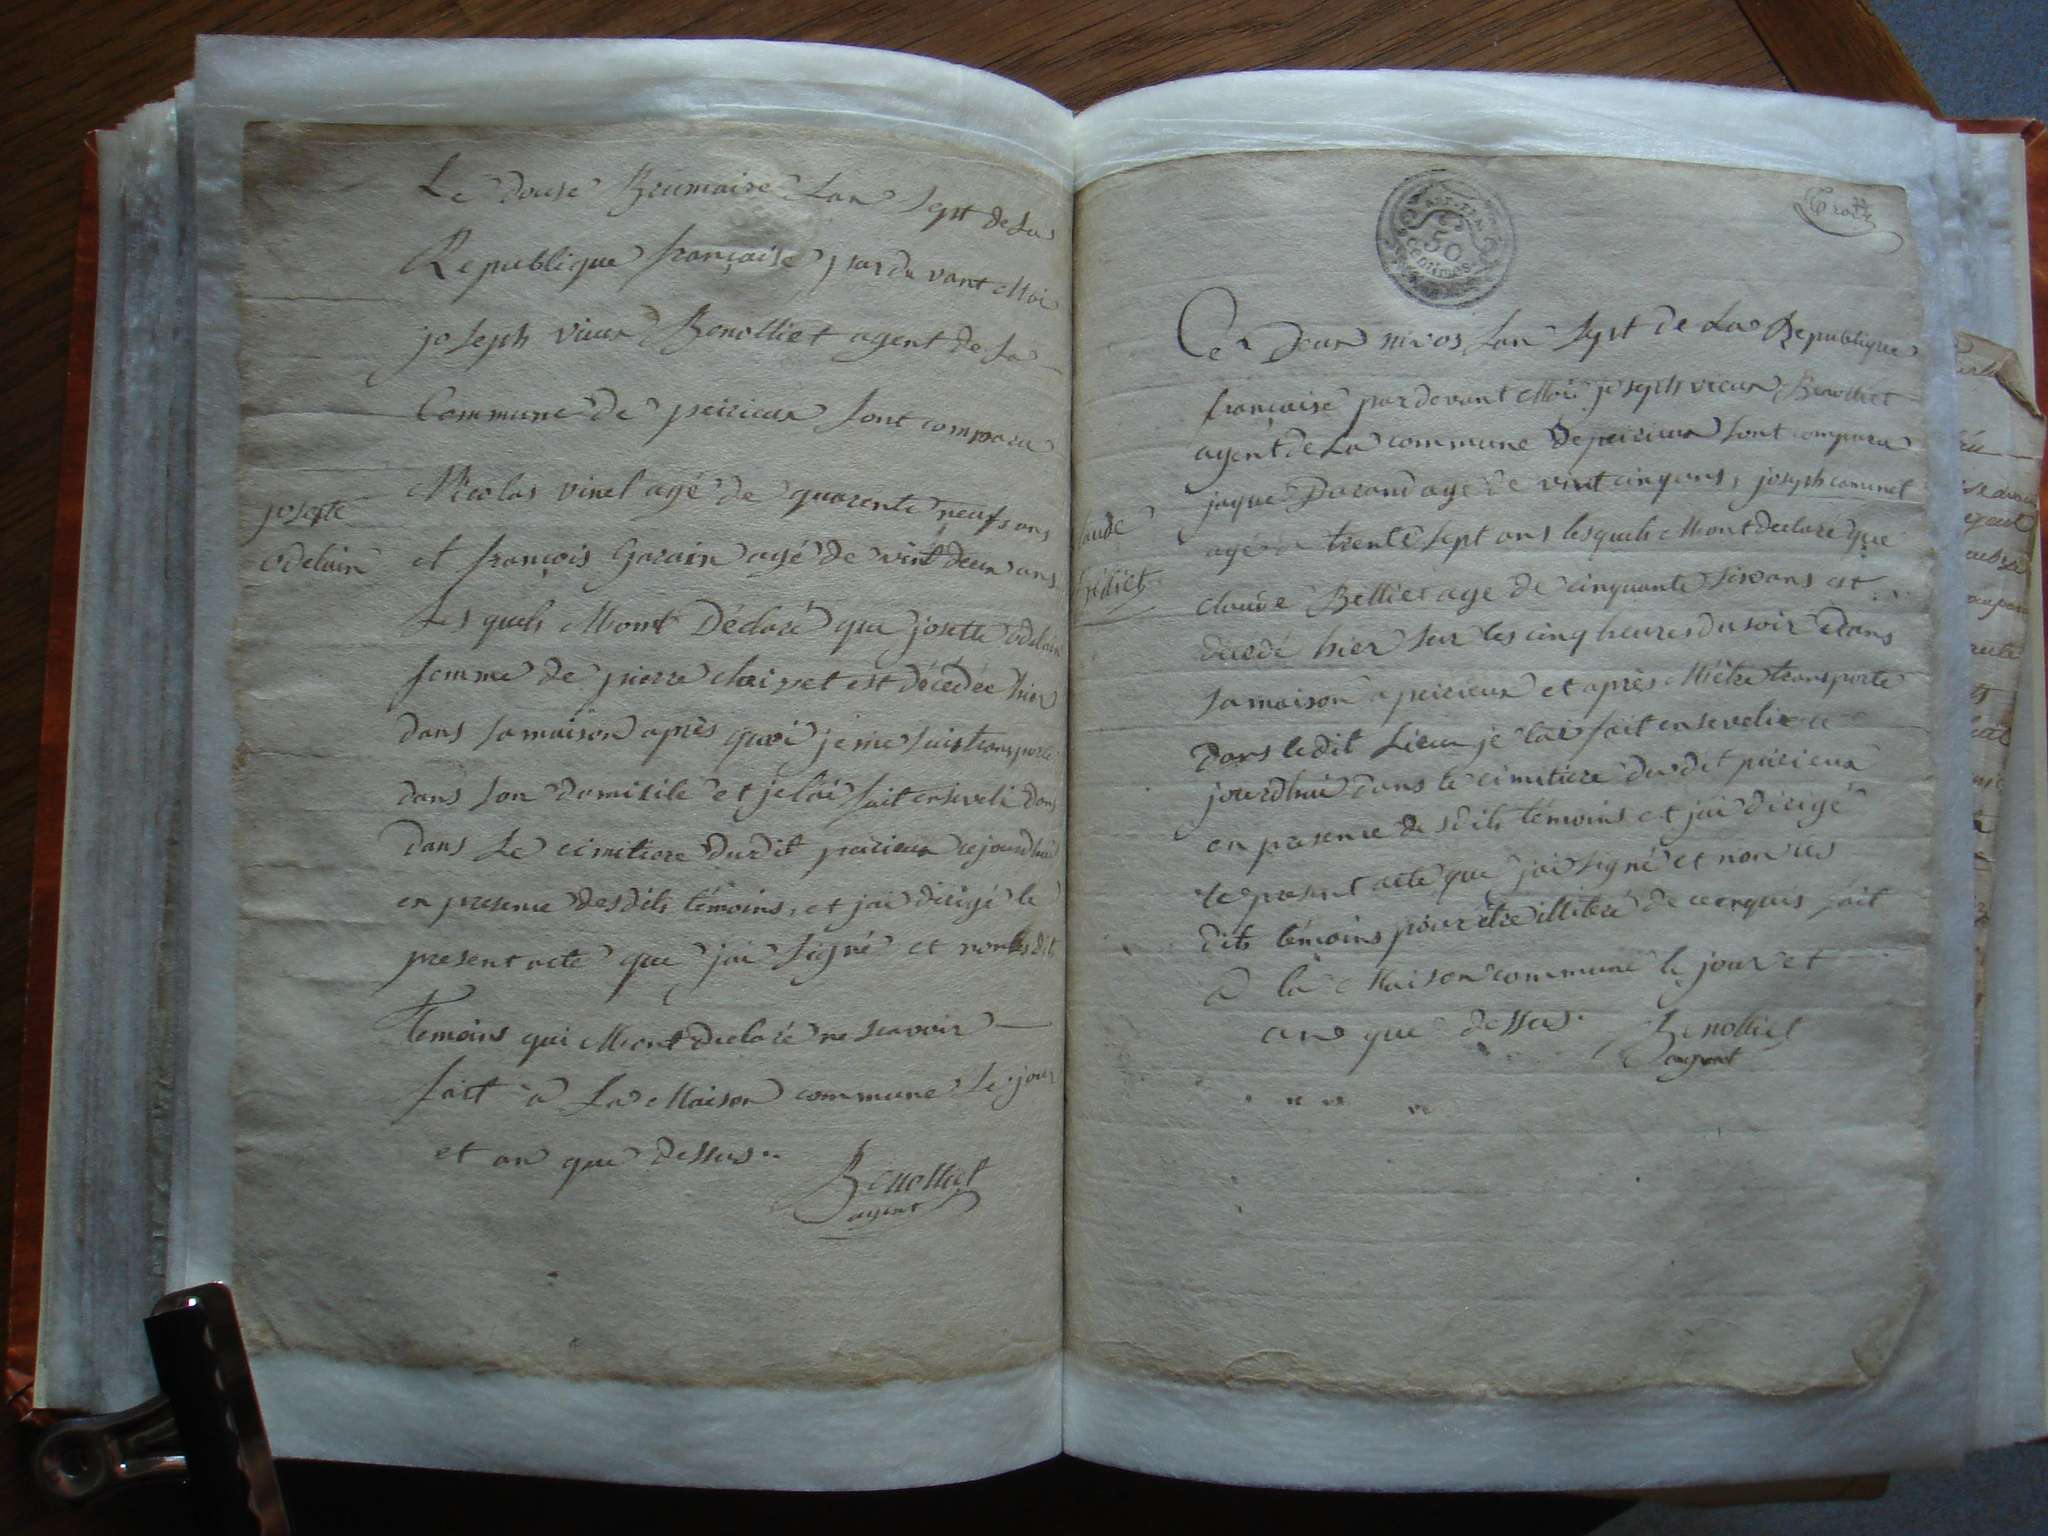 Le douse Brumaire Lan sept de La
Republique françoise pardevant Moi
joseph vieux Benolliet agent de La
Commune de peirieux sont comparu
Nicolas vinel agé de quarente neufs ans
josepte
odelain
et françois Garain agé de vint deux ans
Les quels Mont Déclaré que josette odelain
femme de pierre est décédée hier
dans sa maison après quoi je me suis transporté
dans son domicile et je lai fait enseveli dans
dans Le cimitiere dudit peirieux cejourdhui
en presence desdits témoins, et jai dirigé le
present acte que jai signé et non lesdits
témoins qui Mont declaré ne scavoir
fait à La Maison commune Le jour
et an que dessus
Benolliet
agent
REP. FRA.
50
centimes
Trois
Ce deux nivos Lan sept de La Republique
françoise pardevant Moi joseph vieux Benolliet
agent de La commune de peirieux sont comparu
jaque Durand age de vint cinq ans, joseph
agé de trente sept ans lesquels Mont declaré que
laude
claude Belliet age de cinquante six ans est
décédé hier sur les cinq heures du soir dans
sa maison a peirieux et après Mêtre transporté
dans ledit Lieux je lai fait ensevelir ce
jourdhui dans le cimitiere dudit peirieux
en presence desdits témoins et jai dirigé
le present acte que jai signé et non les
dits témoins pour être illiteré de ce enquis fait
a la Maison commune le jour et
an que dessus
Benolliet
agent